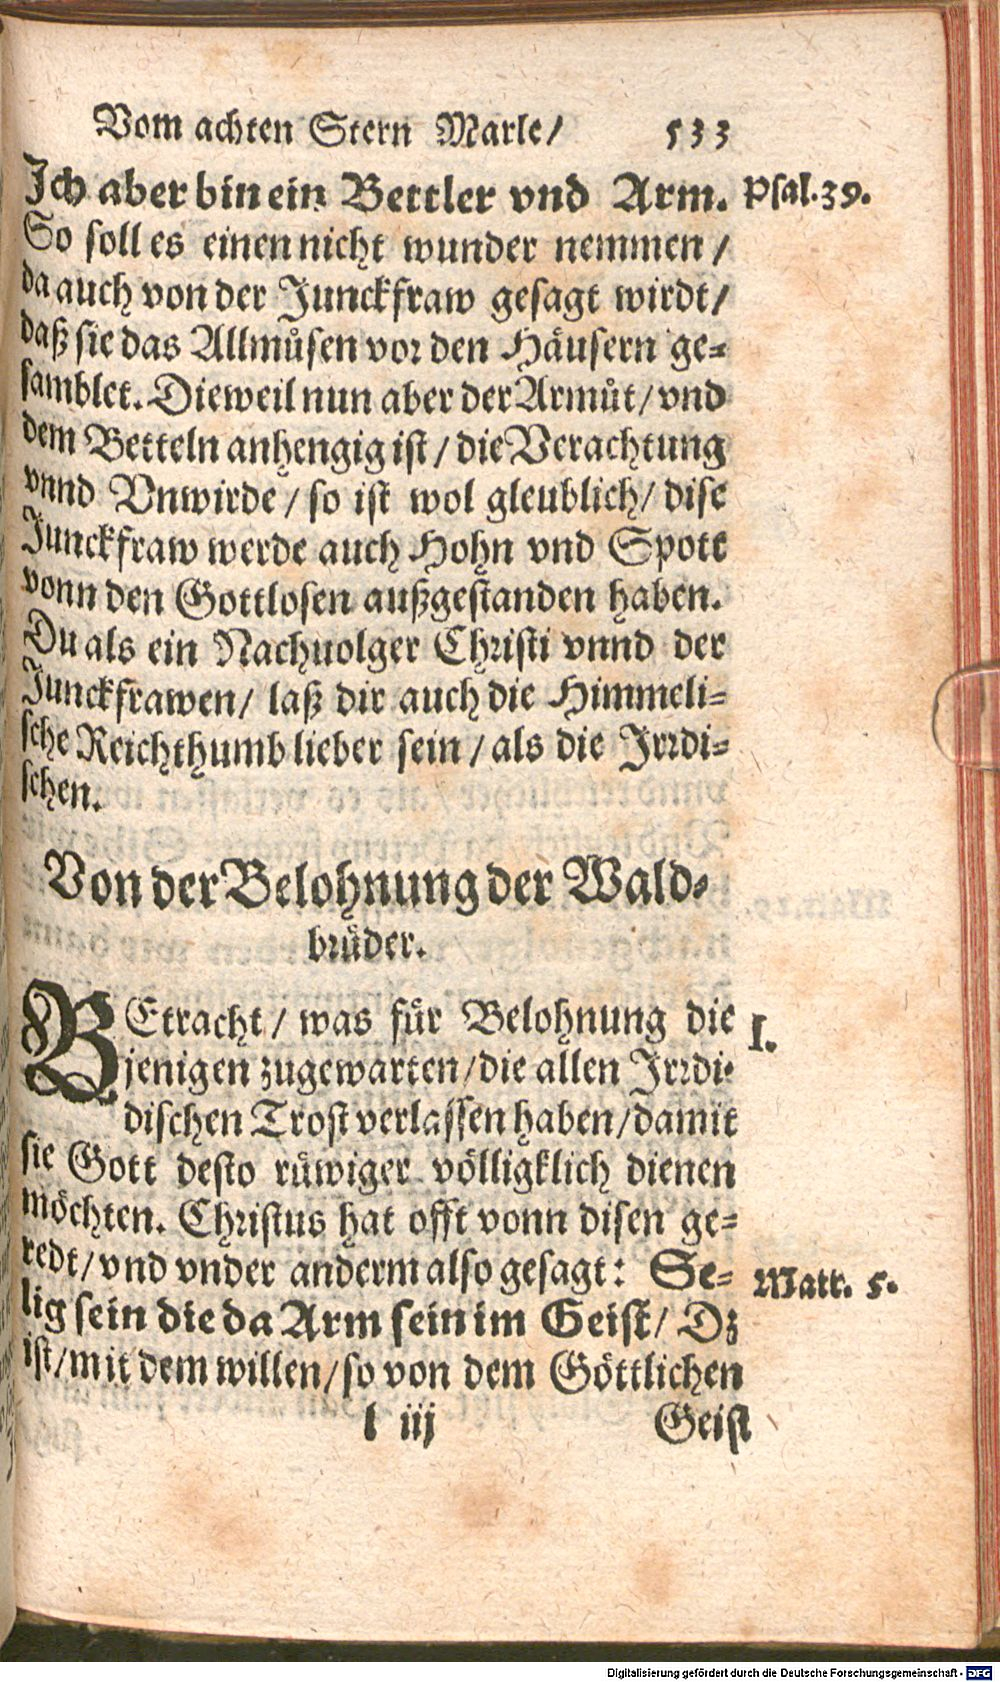 Vom achten Stern Marie/ 533
Ich aber bin ein Bettler vnd Arm. Psal.39.
So soll es einen nicht wunder nemmen /
da auch von der Junckfraw gesagt wirdt/
daß sie das Allmůsen vor den Häusern ge=
samblet. Dieweil nun aber der Armůt/ vnd
dem Betteln anhengig ist / die Verachtung
vnnd Vnwirde / so ist wol gleublich/ dise
Junckfraw werde auch Hohn vnd Spott
vonn den Gottlosen außgestanden haben.
Du als ein Nachuolger Christi vnnd der
Junckfrawen/ laß dir auch die Himmeli=
sche Reichthumb lieber sein / als die Irrdi=
schen.
Von der Belohnung der Wald=
brüder.
BEtracht/ was für Belohnung die I.
jenigen zugewarten/die allen Irrdi=
dischen Trost verlassen haben/damit
sie Gott desto rüwiger völligklich dienen
möchten. Christus hat offt vonn disen ge=
redt/ vnd vnder anderm also gesagt: Se= Matt. 5.
lig sein die da Arm sein im Geist/ Dz
ist/mit dem willen/so von dem Göttlichen
l iij Geist
Digitalisierung gefördert durch die Deutsche Forschungsgemeinschaft - DFG